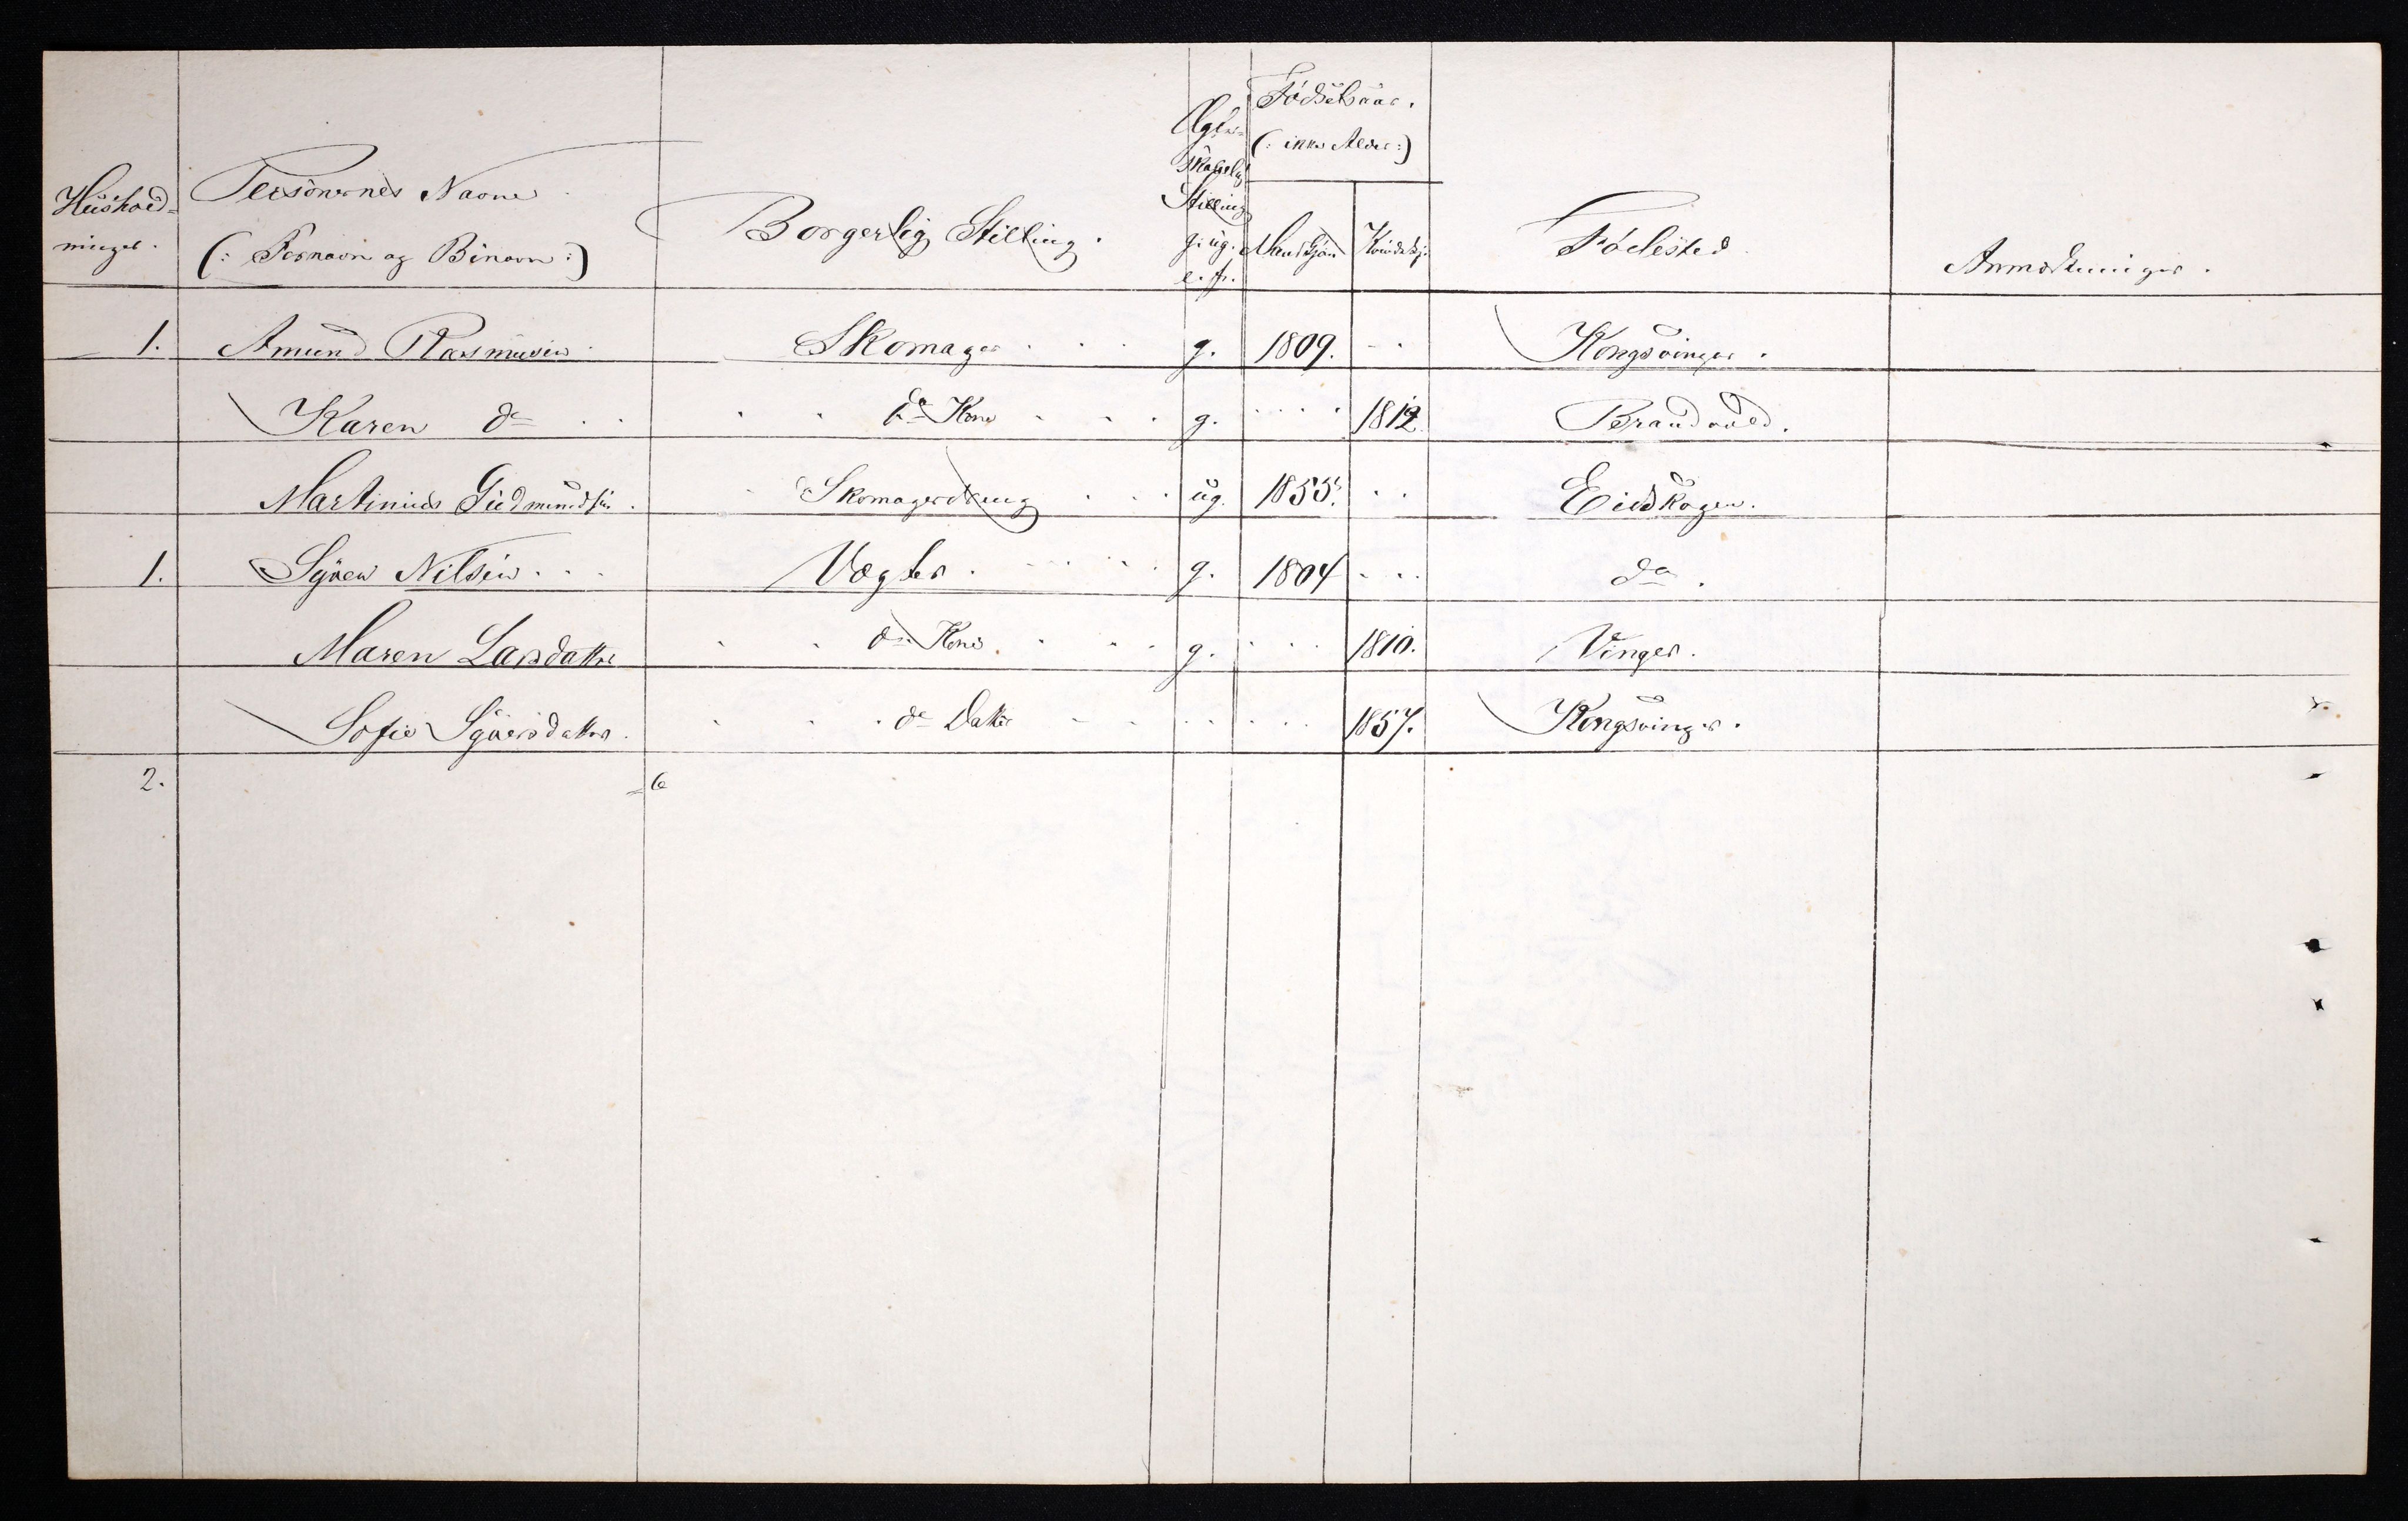 Hushold-
ninger.
Personernes Navne
(: Fornavn og Binavn :)
Borgerlig Stilling.
Ægte-
skabelig
Stilling
g. ug.
e. f.
Födselsaar.
(: ikke Alder :)
Mandkjön Kvindekj.
Födested
Anmærkninger.
1. Amund Rasmusen Skomager . . . g. 1809. - . Kongsvinger.
Karen do . . . . do Kone . . . g. . . . . 1812 Brandvold.
Martinius Gudmundsen. Skomagerdreng . . . ug. 1855. . . Eidskogen.
1. Nilsen . . . Vægter . . . . . g. 1804 . . . do.
Maren Larsdatter . . do Kone. . . . g. . . . 1810. Vinger.
Sofie . . . do Datter - . . . . . 1857. Kongsvinger.
2. 6